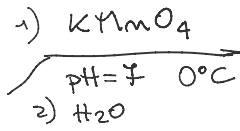 1) KMnO4
pH=7 0°C
2) H2O